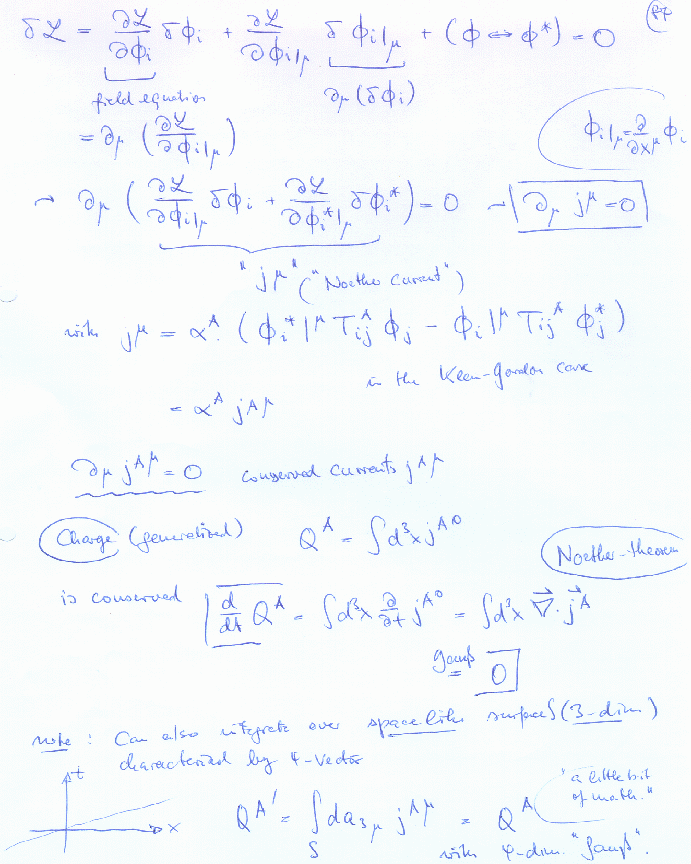 δℒ = ∂ℒ/∂ϕᵢ δϕᵢ + ∂ℒ/∂ϕᵢ|μ δ ϕᵢ|μ + (ϕ ⇔ ϕ*) = 0
field equation ∂μ(δϕᵢ)
= ∂μ (∂ℒ/∂ϕᵢ|μ)
ϕᵢ|μ = ∂/∂xᵘ ϕᵢ
→ ∂μ (∂ℒ/∂ϕᵢ|μ δϕᵢ + ∂ℒ/∂ϕᵢ*|μ δϕᵢ*) = 0 → ∂μ jᵘ = 0
"jᵘ" ("Noether Current")
with jᵘ = αᴬ · (ϕᵢ*|ᵘ Tᵢⱼᴬ ϕⱼ − ϕᵢ|ᵘ Tᵢⱼᴬ ϕⱼ*)
in the Klein-Gordon case
= αᴬ jᴬᵘ
∂μ jᴬᵘ = 0 conserved currents jᴬᵘ
Charge (generalized) Qᴬ = ∫d³x jᴬ⁰
Noether-theorem
is conserved d/dt Qᴬ = ∫d³x ∂/∂t jᴬ⁰ = ∫d³x ∇⃗ · j⃗ᴬ
Gauß = 0
note : Can also integrate over spacelike surface S (3-dim)
characterized by 4-vector
t
x
"a little bit
of math."
Qᴬ′ = ∫ da₃μ jᴬᵘ = Qᴬ
S with 4-dim. "Gauß".